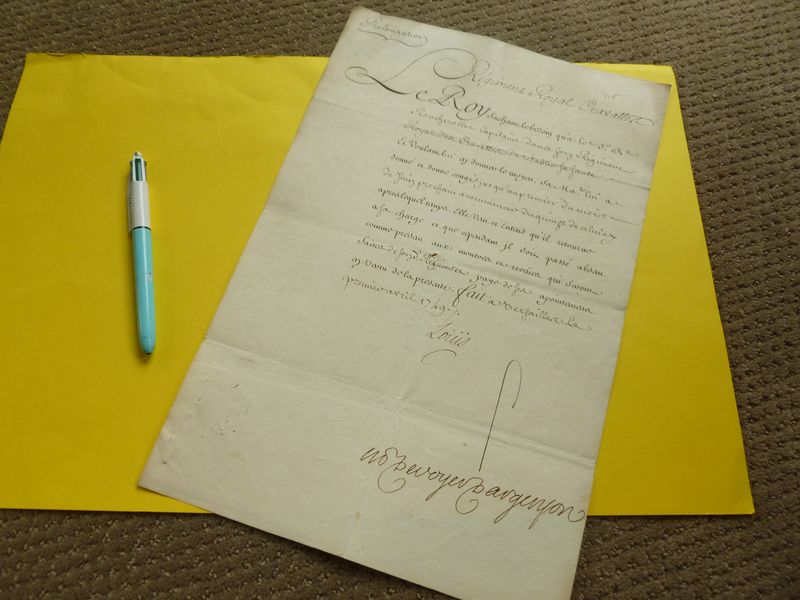 Prolongation
Régiment Royal Cravattes
Le Roy Sachant le besoin qu'a le S.r de
Roncherolles Capitaine dans son Régiment
Royal des Cravattes de rétablir sa santé
Et Voulant lui en donner le moyen. Sa Ma.té lui a
donné et donne congé jusqu'au premier du mois
de Juin prochain a commencer du quinze de celui cy
apres lequel temps Elle Veut et entend qu'il retourne
a sa charge et que cependant il soit passé absent
comme present aux montres et reveües qui seront
faites de son d. Régiment payé de ses apointemens
en Vertu de la presente. Fait a Versailles Le
premier avril 1749
Loüis
M P De voyer D'argenson